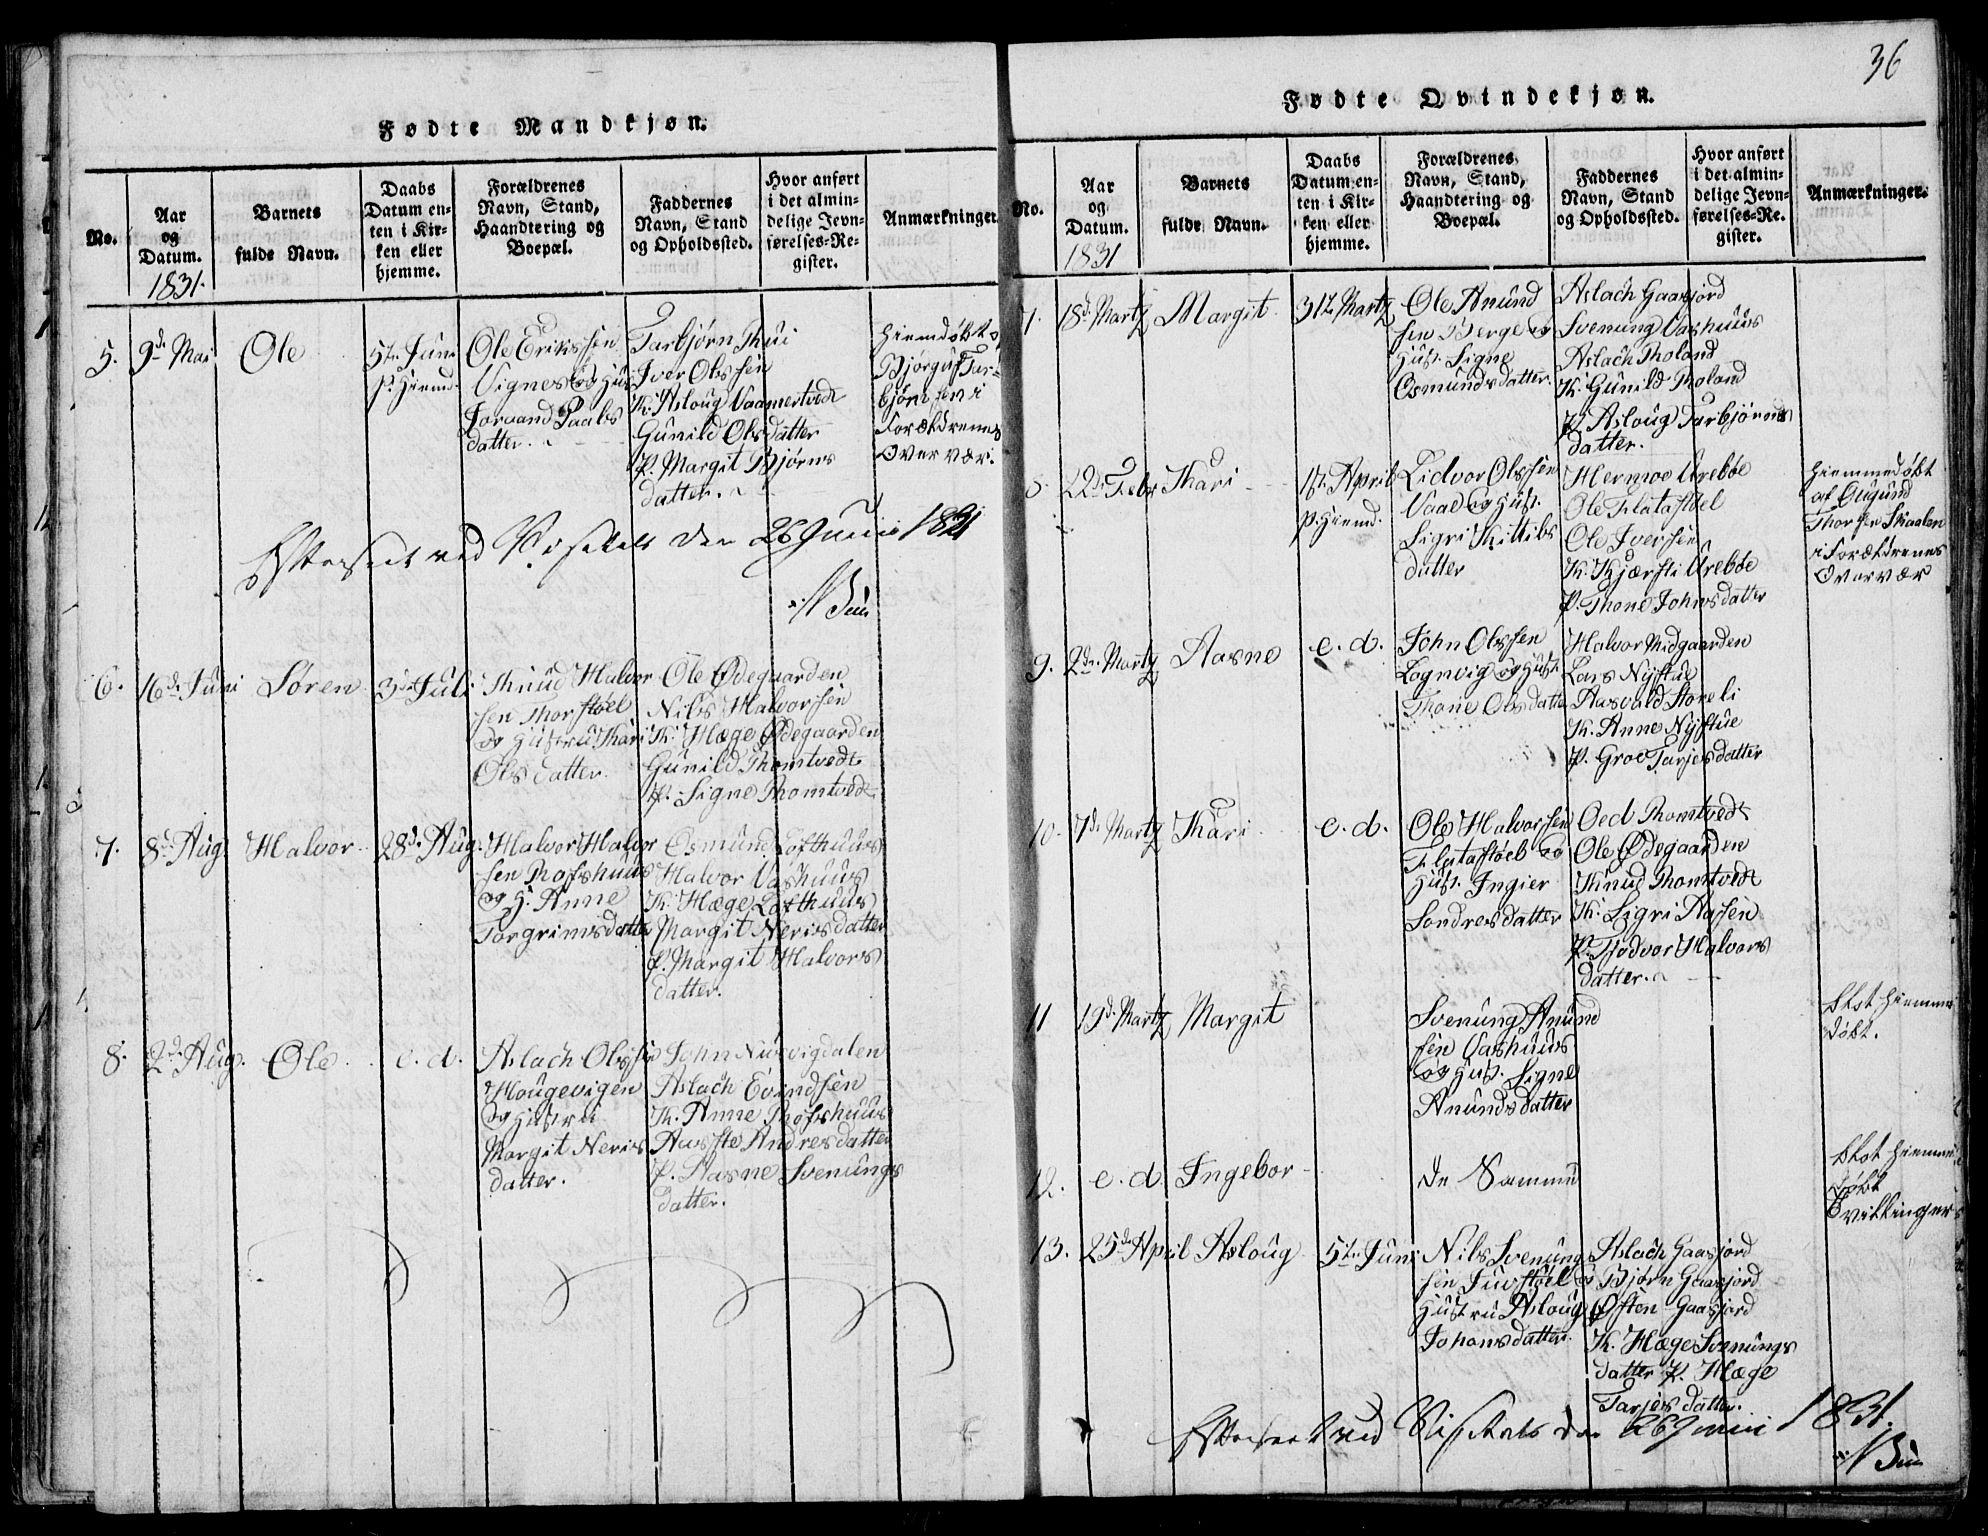 Fødte Mandkjøn.
No.
Aar
og
Datum.
1831.
Barnets
fulde Navn.
Daabs
Datum en-
ten i Kir-
ken eller
hjemme.
Forældrenes
Navn, Stand,
Haandtering og
Boepæl.
Faddernes
Navn, Stand
og Opholdssted.
Hvor anført
i det almin-
delige Jevn-
førelses-Re-
gister.
Anmærkninger.
5.
9de Mai
Ole
5te Juni
p. Hiemd.
Ole Erikssen
Vignes og Hus
Joraand Paals
datter.
Tarbjørn Thui
Iver Olssen
K. Asloug Vaamertvedt
Gunild Olsdatter
P. Margit Bjørns
datter.
Hiemdøbt af
Bjørguf Tar-
bjørnsen i
Forældrenes
Overvær.
Efterseet ved Visitats den 26 Junii 1831
N Bun
6.
16de Juni
Søren
3die Juli
Knud Halvor
sen Thorstøel
og Hustru Kari
Olsdatter.
Ole Ødegaarden
Nils Halvorsen
K. Hæge Ødegaarden
Gunild Thomtvedt
P. Signe Thomtvedt
7.
8de Aug.
Halvor
28de Aug.
Halvor Halvor
sen Rofshuus
og H. Anne
Torgrimsdatter
Osmund Lofthuus
Halvor Vashuus
K. Hæge Lofthuus
Margit Nerisdatter
P. Margit Halvors
datter.
8.
2de Aug.
Ole
e. d.
Aslach Olssen
Hougevigen
og Hustru
Margit Neris
datter.
John Nusvigdalen
Aslach Evindsen
K. Anne Rofshuus
Aaste Andresdatter
P. Aasne Svenungs
datter.
36
Fødte Qvindekjøn.
No.
Aar
og
Datum.
1831
Barnets
fulde Navn.
Daabs
Datum en-
ten i Kir-
ken eller
hjemme.
Forældrenes
Navn, Stand,
Haandtering og
Boepæl.
Faddernes
Navn, Stand
og Opholdssted.
Hvor anført
i det almin-
delige Jevn-
førelses-Re-
gister.
Anmærkninger.
7.
18de Martz
Margit
31te Martz
Ole Anund
sen Berge og
Hust. Signe
Osmundsdatter.
Aslach Gaasjord
Svenung Vashuus
Aslach Tholand
K. Gunild Tholand
P. Asloug Tarbjørns
datter.
8.
22de Febr
Kari
1ste April
p. Hiemd.
Lidvor Olssen
Vaal og Hust.
Sigri Kittils
datter
Hermoe Urebøe
Ole Flatastøel
Ole Iversen
K. Kjærsti Urebøe
P. Thone Johnsdatter
Hiemmedøbt
af Augund
Thorsen Skaalen
i Forældrenes
Overvær
9.
2den Martz
Aasne
e. d.
John Olssen
Lognvig og Hust.
Thone Olsdatter
Halvor Midgaarden
Lars Nystue
Aasvald Storeli
K. Anne Nystue
P. Groe Tarjesdatter
10.
7de Martz
Kari
e. d.
Ole Halvorsen
Flatastøel og
Hust. Ingier
Sondresdatter
Oed Thomtvedt
Ole Ødegaarden
Knud Thomtvedt
K. Sigri Aasen
P. Tjodvor Halvors
datter.
11
19de Martz
Margit
Svenung Anund
sen Vashuus
og Hust. Signe
Anundsdatter
Blot Hiemme
døbt.
12.
e. d.
Ingebor
De Samme
Blot Hiemme
døbt
Tvillinger
13.
25de April
Asloug
5te Juni
Nils Svenung
sen Juvstøel og
Hustru Asloug
Johansdatter.
Aslach Gaasjord
Bjørn Gaasjord
Østen Gaasjord
K. Hæge Svenungs
datter P. Hæge
Tarjesdatter.
Efterseet ved Visitats den 26 Junii 1831.
N Bun